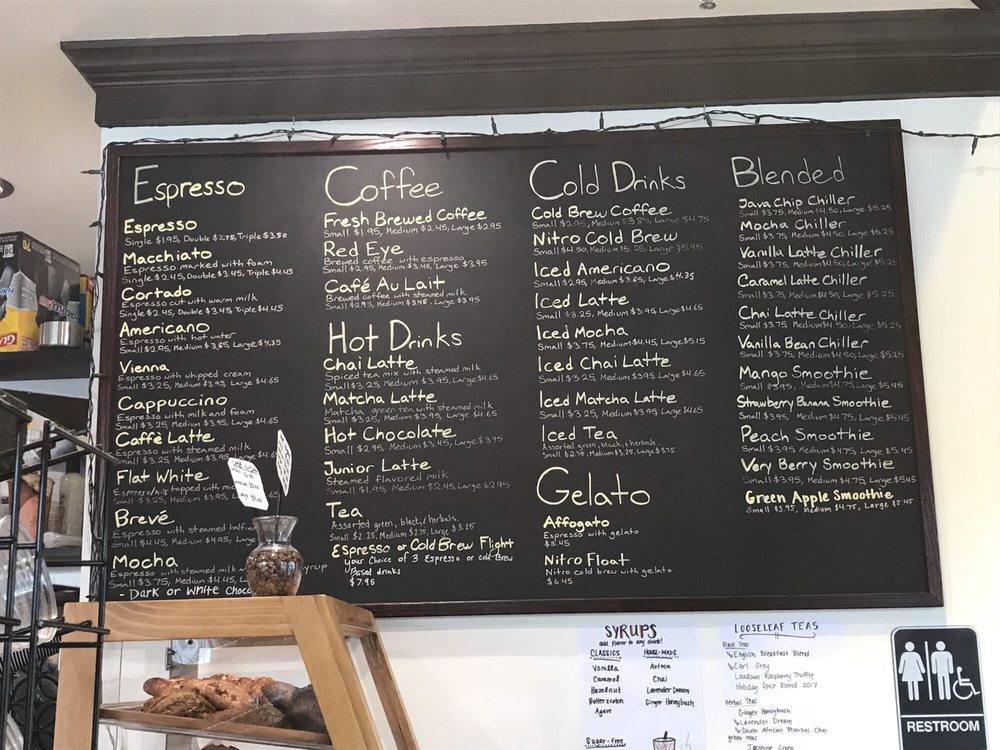 Espresso
Espresso
Single $1.95, Double $2.75, Triple $3.50
Macchiato
Espresso marked with foam
Single $2.45, Double $3.45, Triple $4.45
Cortado
Espresso cut with warm milk
Single $2.45, Double $3.45, Triple $4.45
Americano
Espresso with hot water
Small $2.95, Medium $3.65, Large $4.35
Vienna
Espresso with whipped cream
Small $3.25, Medium $3.95, Large $4.65
Cappuccino
Espresso with milk and foam
Small $3.25, Medium $3.95, Large $4.65
Caffè Latte
Espresso with steamed milk
Small $3.25, Medium $3.95
Flat White
Espresso & milk topped with
Small $3.25, Medium $3.95,
Brevé
Espresso with steamed half
Small $4.45, Medium $4.95, Large
Mocha
Espresso with steamed milk syrup
Small $3.75, Medium $4.45,
- Dark or White Choco
Coffee
Fresh Brewed Coffee
Small $1.95, Medium $2.45, Large $2.95
Red Eye
Brewed coffee with espresso
Small $2.95, Medium $3.45, Large $3.95
Café Au Lait
Brewed coffee with steamed milk
Small $2.95, Medium $3.45, Large $3.95
Hot Drinks
Chai Latte
Spiced tea mix with steamed milk
Small $3.25, Medium $3.95, Large $4.65
Matcha Latte
Matcha green tea with steamed milk
Small $3.25, Medium $3.95, Large $4.65
Hot Chocolate
Small $2.95, Medium $3.45, Large $3.95
Junior Latte
Steamed flavored milk
Small $1.95, Medium $2.45, Large $2.95
Tea
Assorted green, black, & herbals.
Small $2.25, Medium $2.75, Large $3.25
Espresso or Cold Brew Flight
your Choice of 3 Espresso or cold Brew
Based drinks
$7.95
Cold Drinks
Cold Brew Coffee
Small $2.95, Medium $3.85, Large $4.75
Nitro Cold Brew
Small $4.50, Medium $5.25, Large $5.95
Iced Americano
Small $2.95, Medium $3.65, Large $4.35
Iced Latte
Small $3.25, Medium $3.95, Large $4.65
Iced Mocha
Small $3.75, Medium $4.45, Large $5.15
Iced Chai Latte
Small $3.25, Medium $3.95, Large $4.65
Iced Matcha Latte
Small $3.25, Medium $3.95, Large $4.65
Iced Tea
Assorted green, black, & herbals.
Small $2.75, Medium $3.25, Large $3.75
Gelato
Affogato
Espresso with gelato
$5.45
Nitro Float
Nitro cold brew with gelato
$6.45
Blended
Java Chip Chiller
Small $3.75, Medium $4.50, Large $5.25
Mocha Chiller
Small $3.75, Medium $4.50, Large $5.25
Vanilla Latte Chiller
Small $3.75, Medium $4.50, Large $5.25
Caramel Latte Chiller
Small $3.75, Medium $4.50, Large $5.25
Chai Latte Chiller
Small $3.75, Medium $4.50, Large $5.25
Vanilla Bean Chiller
Small $3.75, Medium $4.50, Large $5.25
Mango Smoothie
Small $3.95, Medium $4.75, Large $5.45
Strawberry Banana Smoothie
Small $3.95, Medium $4.75, Large $5.45
Peach Smoothie
Small $3.95, Medium $4.75, Large $5.45
Very Berry Smoothie
Small $3.95, Medium $4.75, Large $5.45
Green Apple Smoothie
Small $3.95, Medium $4.75, Large $5.45
SYRUPS
add flavor to any drink!
CLASSICS
Vanilla
Caramel
Hazelnut
Butterscotch
Agave
HOUSE-MADE
Azteca
Chai
Lavender Dream
Ginger Honeybush
Sugar-Free
LOOSELEAF TEAS
Black Teas
English Breakfast Blend
Earl Grey
Loudoun Raspberry Truffle
Holiday Spice Blend 2017
Herbal Teas
Ginger Honeybush
Lavender Dream
South African Rooibos Chai
green teas
Jasmine Green
RESTROOM